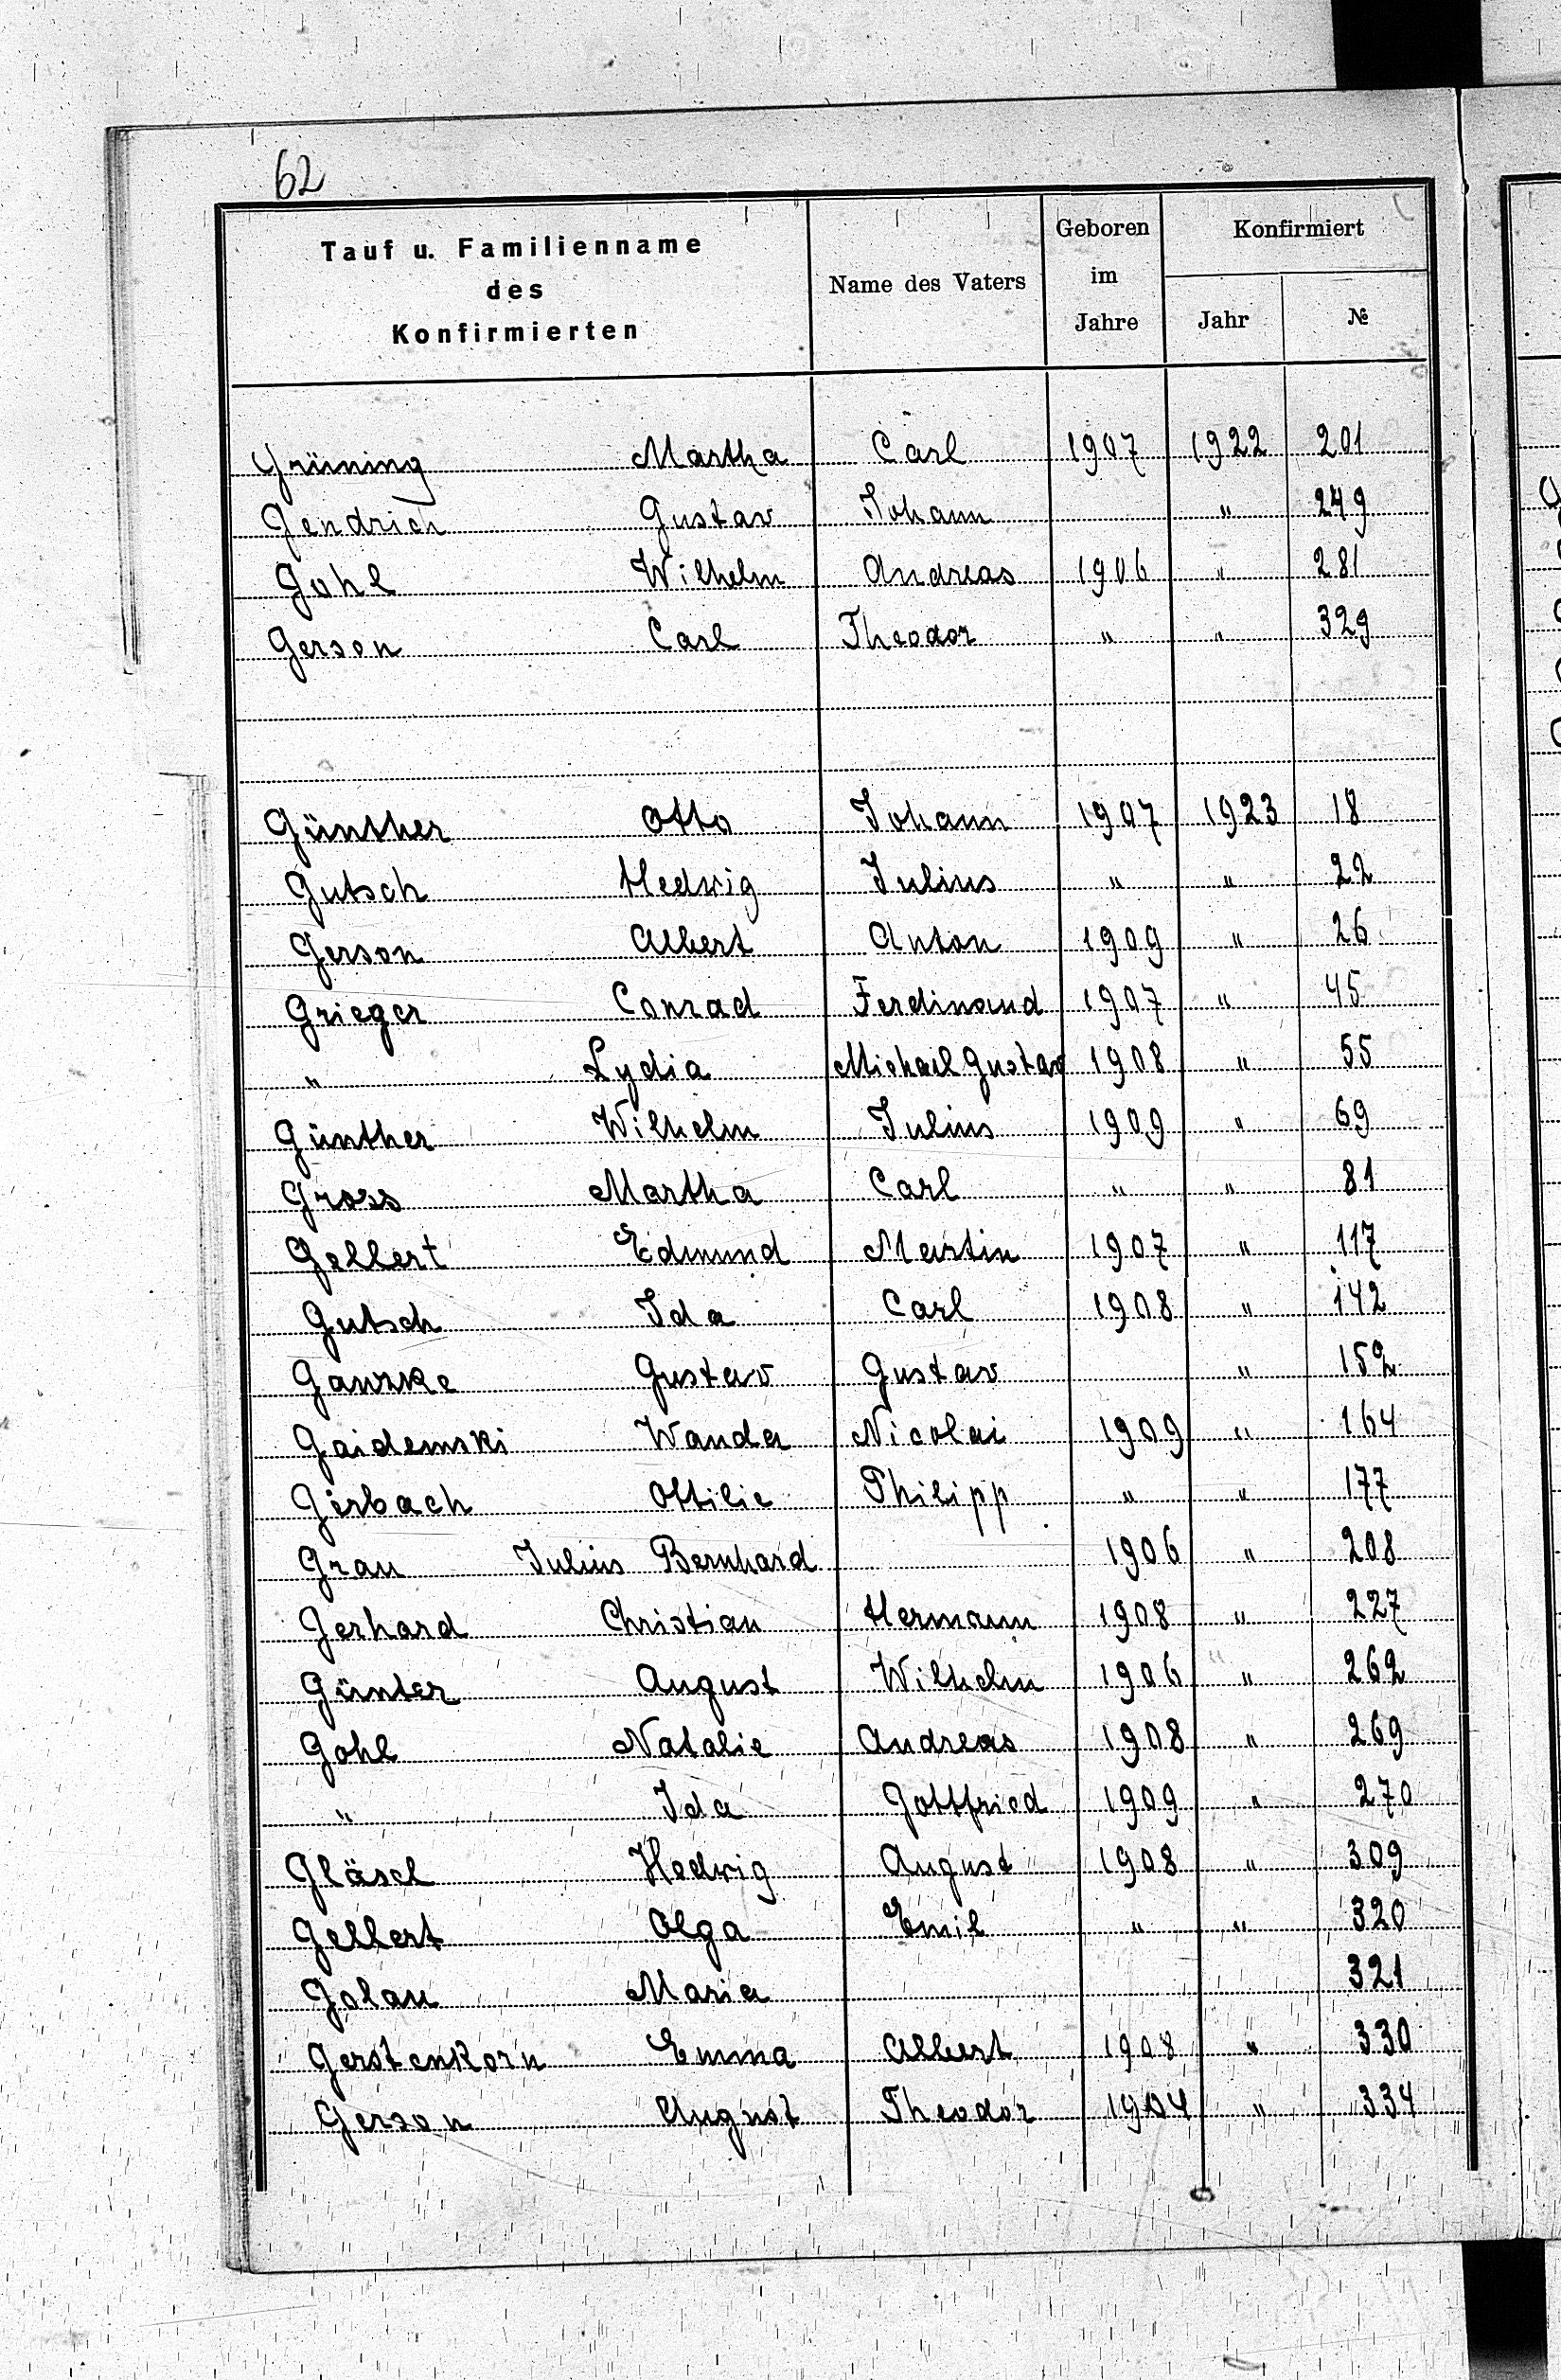 62
Tauf u. Familienname des Konfirmierten | Name des Vaters | Geboren im Jahre | Konfirmiert Jahr | №
Grüning Martha Carl 1907 1922 201
Gendrich Gustav Johann " 249
Gohl Wilhelm Andreas 1906 " 281
Gerson Carl Theodor " " 329
Günther Otto Johann 1907 1923 18
Gutsch Hedwig Julius " " 22
Gerson Albert Anton 1909 " 26
Grieger Conrad Ferdinand 1907 " 45
" Lydia Michael Gustav 1908 " 55
Günther Wilhelm Julius 1909 " 69
Gross Martha Carl " " 81
Gellert Edmund Martin 1907 " 117
Gutsch Ida Carl 1908 " 142
Gawrke Gustav Gustav " 152
Gaidemski Wanda Nicolai 1909 " 164
Gerbach Ottilie Philipp " " 177
Grau Julius Bernhard 1906 " 208
Gerhard Christian Hermann 1908 " 227
Günter August Wilhelm 1906 " 262
Gohl Natalie Andreas 1908 " 269
" Ida Gottfried 1909 " 270
Gläsel Hedwig August 1908 " 309
Gellert Olga Emil " " 320
Golau Maria 321
Gerstenkorn Emma Albert 1908 " 330
Gerson August Theodor 1904 " 334